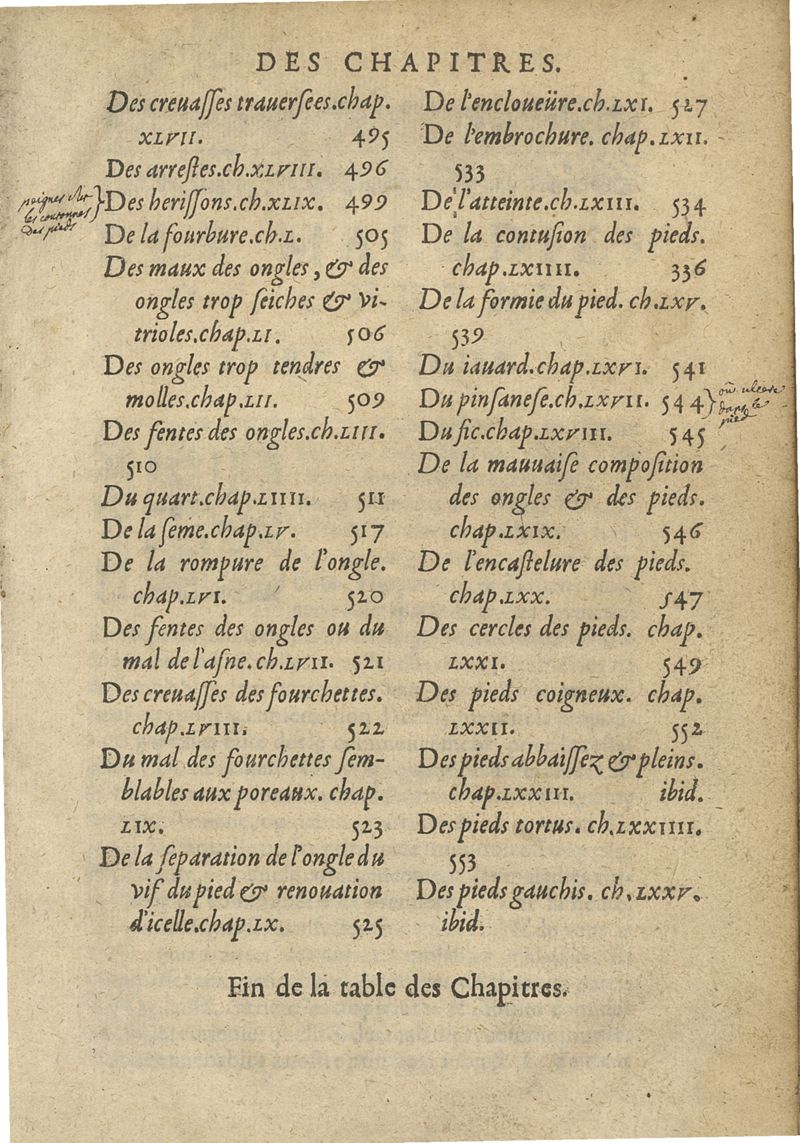 DES CHAPITRES.
Des creuaſſes trauerſees.chap.
XLVII. 495
Des arreſtes.ch.XLVIII. 496
Des heriſſons.ch.XLIX. 499
De la fourbure.ch.L. 505
Des maux des ongles, & des
ongles trop ſeiches & vi-
trioles.chap.LI. 506
Des ongles trop tendres &
molles.chap.LII. 509
Des fentes des ongles.ch.LIII.
510
Du quart.chap.LIIII. 511
De la ſeme.chap.LV. 517
De la rompure de l'ongle.
chap.LVI. 520
Des fentes des ongles ou du
mal de l'aſne.ch.LVII. 521
Des creuaſſes des fourchettes.
chap.LVIII. 522
Du mal des fourchettes ſem-
blables aux poreaux. chap.
LIX. 523
De la ſeparation de l'ongle du
vif du pied & renouation
d'icelle.chap.LX. 525
De l'encloueüre.ch.LXI. 527
De l'embrochure. chap.LXII.
533
De l'atteinte.ch.LXIII. 534
De la contuſion des pieds.
chap.LXIIII. 336
De la formie du pied. ch.LXV.
539
Du iauard.chap.LXVI. 541
Du pinſaneſe.ch.LXVII. 544
Du fic.chap.LXVIII. 545
De la mauuaiſe compoſition
des ongles & des pieds.
chap.LXIX. 546
De l'encaſtelure des pieds.
chap.LXX. 547
Des cercles des pieds. chap.
LXXI. 549
Des pieds coigneux. chap.
LXXII. 552
Des pieds abbaiſſez & pleins.
chap.LXXIII. ibid.
Des pieds tortus. ch.LXXIIII.
553
Des pieds gauchis. ch.LXXV.
ibid.
Fin de la table des Chapitres.
des pieds
ou ulcere
dans le
pié